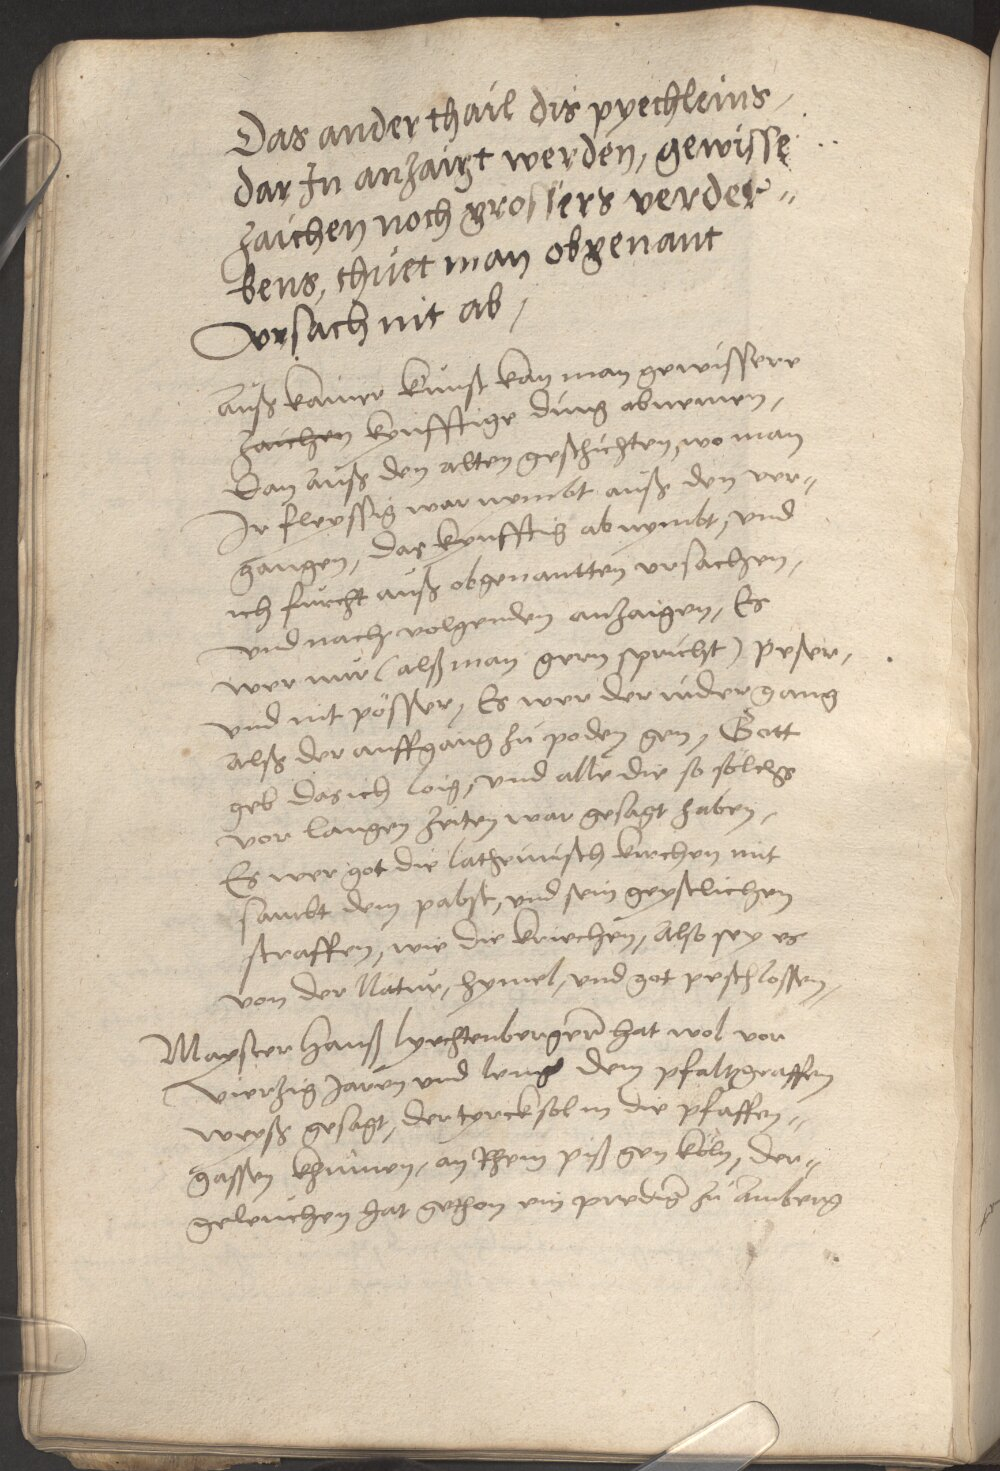 Das ander thail dis pyechleins,
dar In anzaigt werden, gewisse
zaichen noch grossers verder=
bens, thuet man obgenant
vrsach nit ab,
Auß kainer kunst kan man gewissere
zaichen kunfftige ding abnemen,
Dan auß den alten geschichten, wo man
Ir fleyssig war nembt auß den ver=
gangen, das kunfftig abnymbt, vnd
ich furcht auß obgenantten vrsachen,
vnd nach volgenden anzaigen, Es
wer nur (alß man gern spricht) peser,
vnd nit pösser, Es wer der nidergang
alß der auffgang zu poden gen, Gott
geb das ich loig, vnd alle die so solchs
vor langen zeiten war gesagt haben,
Es wer got die latheinisch kirchen mit
sambt dem pabst, vnd sein geystlichen
straffen, wie die kriechen, Also sey es
von der Natur, hymel, vnd got peschlossen,
Mayster Hanß lyechtenberger hat wol vor
vierzig Jaren vnd leng dem pfaltzgraffen
weyß gesagt, der tyrck sol in die pfaffen=
gassen khumen, an Rhein piß gen köln, der=
geleichen hat gethon ein prediger zu Amberg